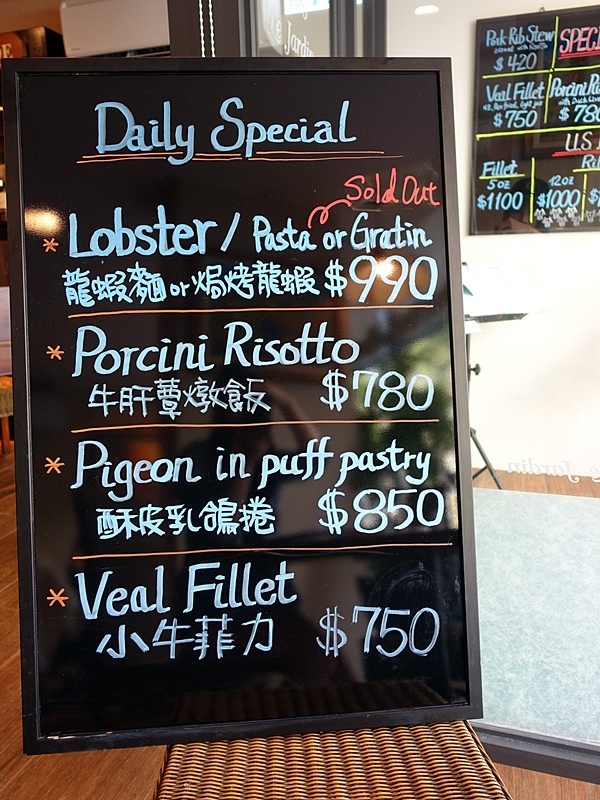 Daily Special
Sold Out
* Lobster / Pasta or Gratin
龍蝦麵 or 焗烤龍蝦 $990
* Porcini Risotto
牛肝蕈燉飯 $780
* Pigeon in puff pastry
酥皮乳鴿捲 $850
* Veal Fillet
小牛菲力 $750
Pork Rib Stew
$420
SPEC
Veal Fillet
$750
Porcini Ri
with Duck Live
$780
U.S.
Fillet
5oz
$1100
Ri
12oz
$1000
Jardin